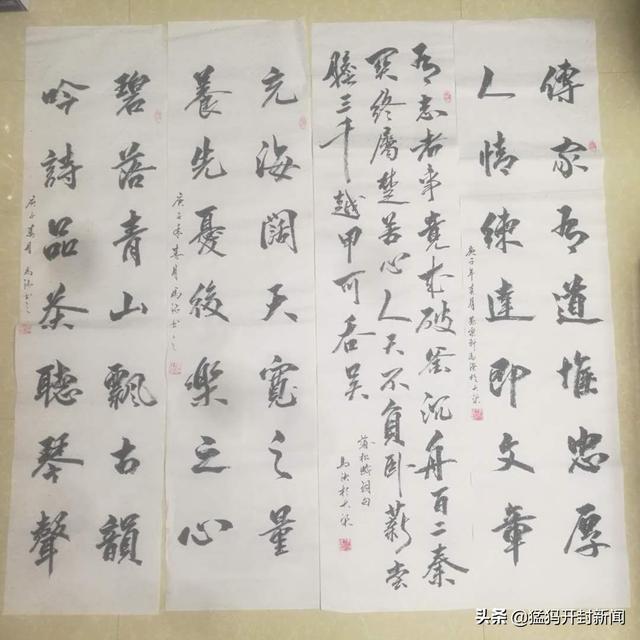 傳家有道惟忠厚
人情練達即文章
庚子年春月
有志者事竟成破釜沉舟百二秦
関終屬楚苦心人天不負臥薪嘗
膽三千越甲可吞吳
蒲松齡詞句
於大梁
充海闊天寬之量
養先憂後樂之心
庚子年春月
碧落青山飄古韻
吟詩品茶聽琴聲
庚子春月
头条 @猛犸开封新闻